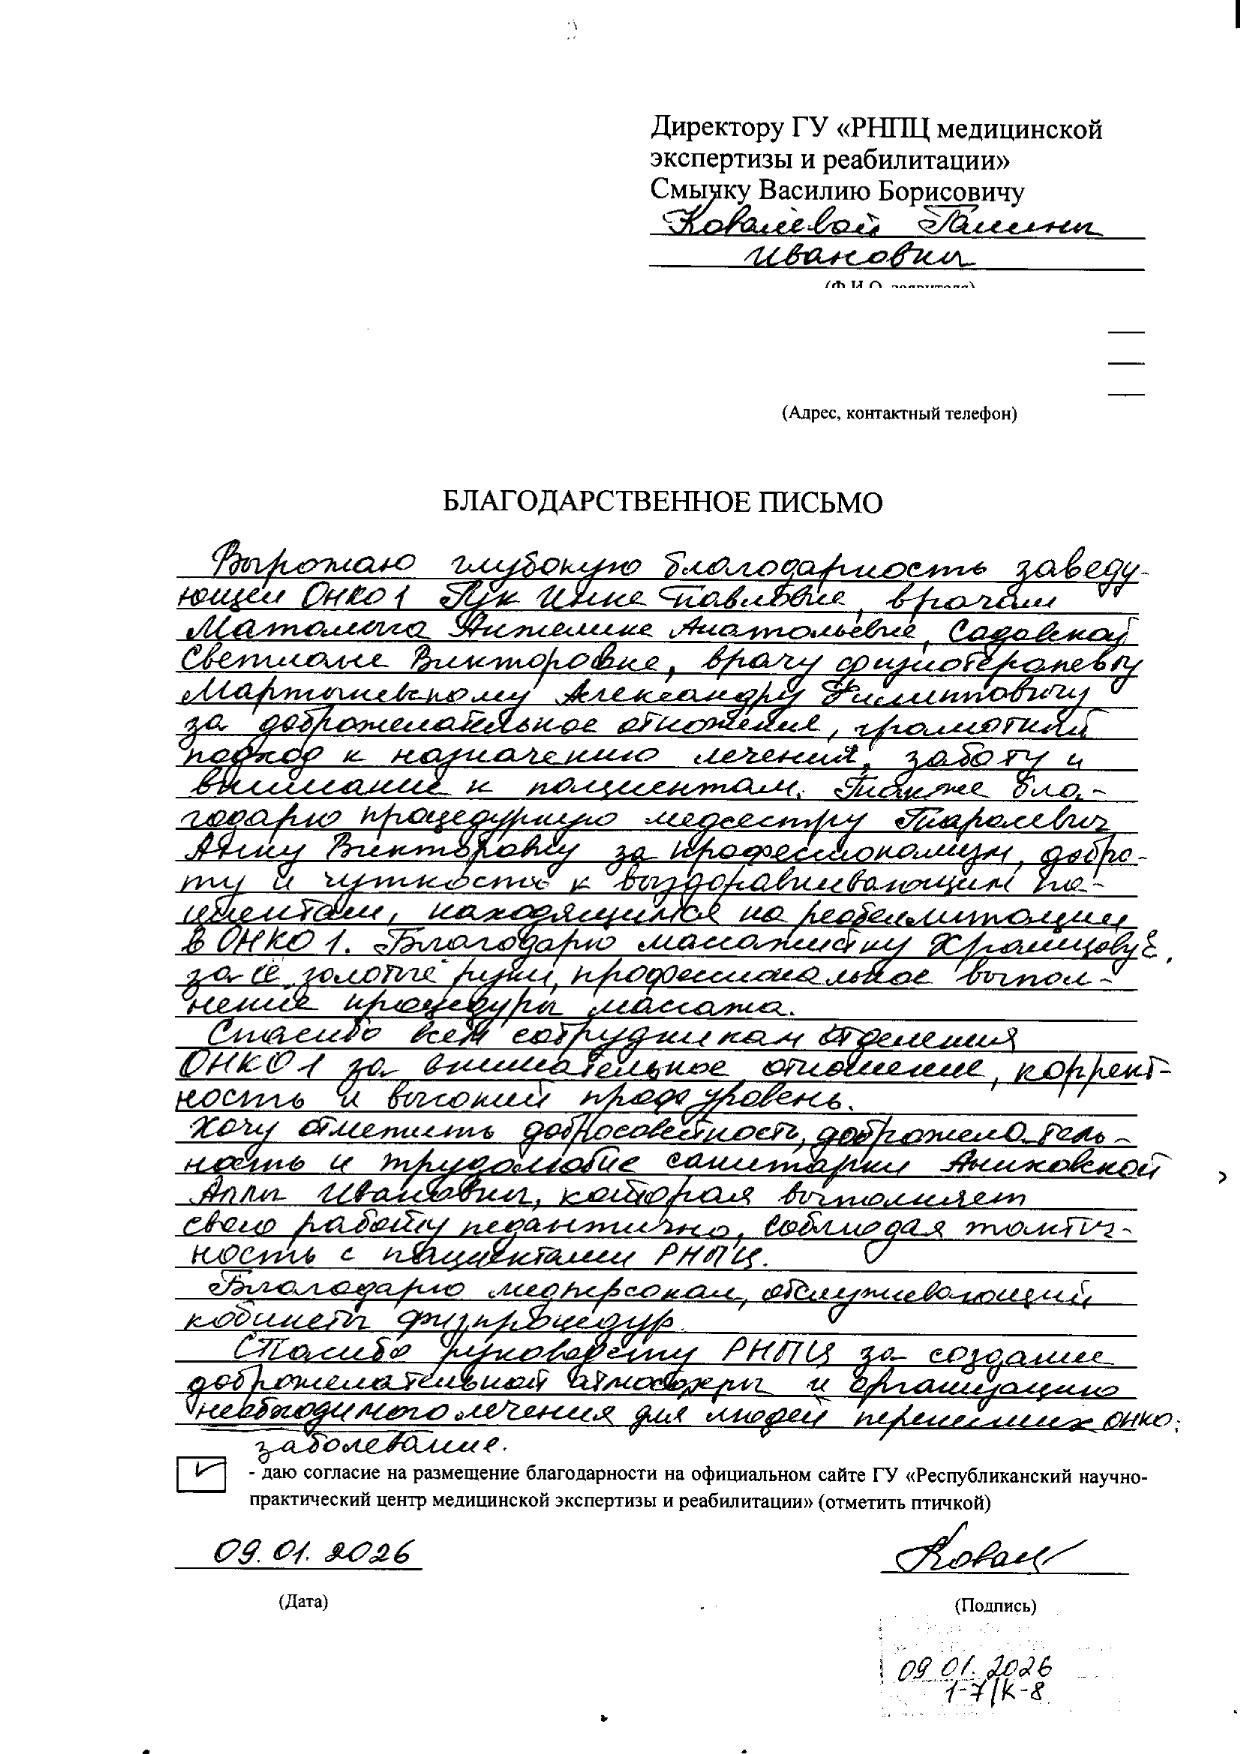 Директору ГУ «РНПЦ медицинской
экспертизы и реабилитации»
Смычку Василию Борисовичу
Ковалёвой Галины
Ивановны
(Ф.И.О. заявителя)
(Адрес, контактный телефон)
БЛАГОДАРСТВЕННОЕ ПИСЬМО
Выражаю глубокую благодарность заведу-
ющей ОНКО1 Пук Инне Павловне, врачам
Анжелике Анатольевне, Садовской
Светлане Викторовне, врачу физиотерапевту
Александру Филипповичу
за доброжелательное отношение, грамотный
подход к назначению лечения, заботу и
внимание к пациентам. Также бла-
годарю процедурную медсестру Таралевич
Анну Викторовну за профессионализм, добро-
ту и чуткость к выздоравливающим па-
циентам, находящимся на реабилитации
в ОНКО1. Благодарю массажистку Храмцову Е.
за её "золотые" руки, профессиональное выпол-
нение процедуры массажа.
Спасибо всем сотрудникам отделения
ОНКО1 за внимательное отношение, коррект-
ность и высокий проф. уровень.
Хочу отметить добросовестность, доброжелатель-
ность и трудолюбие санитарки Аниховской
Аллы Ивановны, которая выполняет
свою работу педантично, соблюдая тактич-
ность с пациентами РНПЦ.
Благодарю медперсонал, обслуживающий
кабинеты физпроцедур.
Спасибо руководству РНПЦ за создание
доброжелательной атмосферы и организацию
необходимого лечения для людей перенесших онко.
заболевание.
- даю согласие на размещение благодарности на официальном сайте ГУ «Республиканский научно-
практический центр медицинской экспертизы и реабилитации» (отметить птичкой)
09.01.2026
(Дата)
(Подпись)
09 01. 2026
1-7/К-8